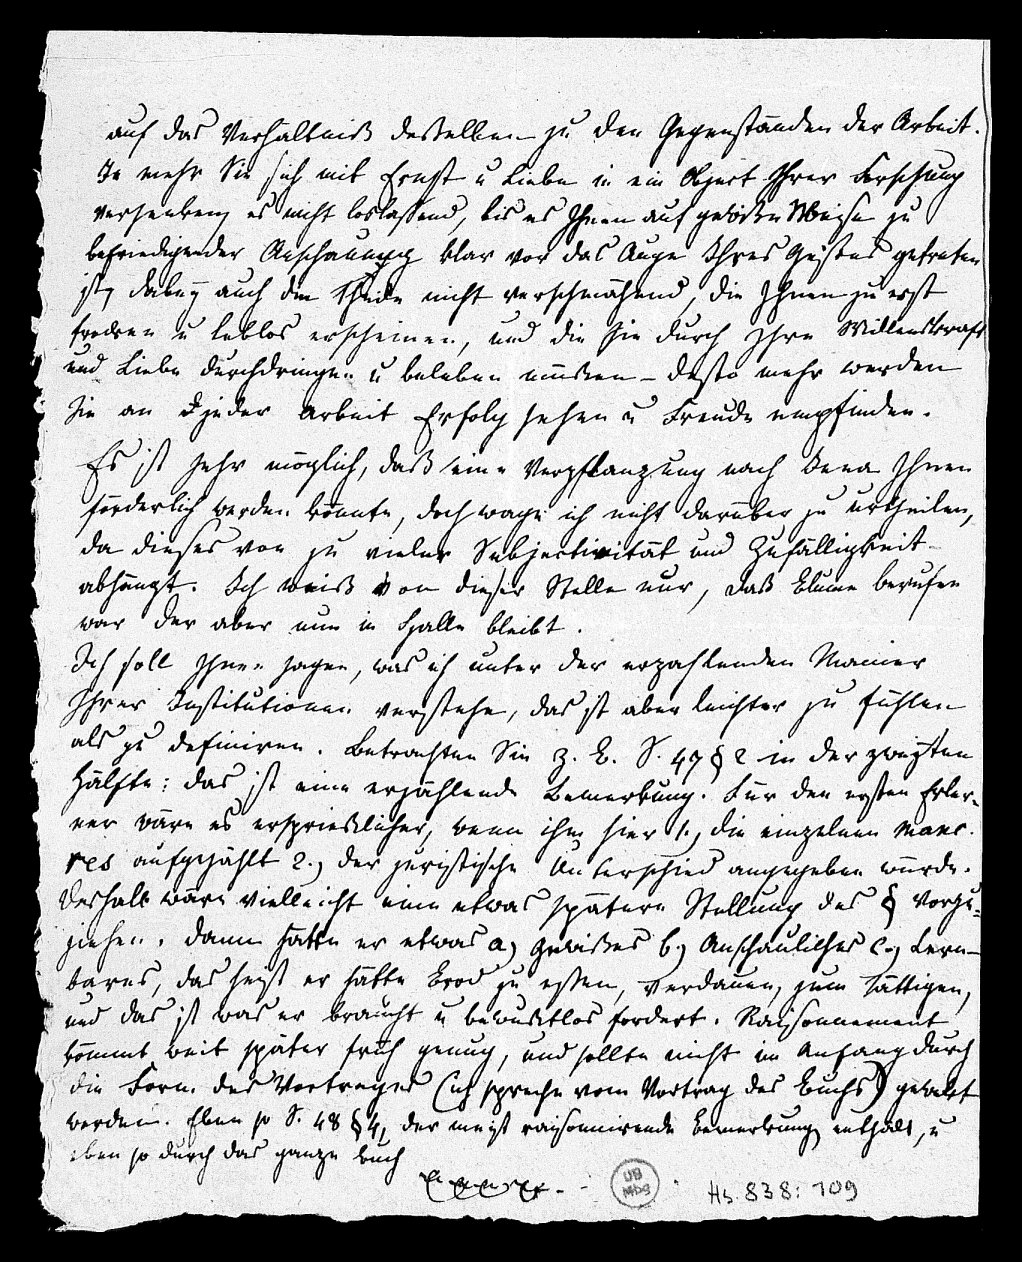 auf das Verhältniß desselben zu den Gegenständen der Arbeit.
Je mehr Sie sich mit Ernst u Liebe in ein Object Ihrer Forschung
versenken, es nicht loslassend, bis es Ihnen auf gewisse Weise zu
befriedigender Anschauung klar vor das Auge Ihres Geistes getreten
ist, dabey auch die Theile nicht verschmähend, die Ihnen zu erst
trocken u leblos erscheinen, und die Sie durch Ihre Willenskraft
und Liebe durchdringen u beleben müssen – desto mehr werden
Sie an jeder Arbeit Erfolg sehen u Freude empfinden.
Es ist sehr möglich, daß eine Verpflanzung nach Jena Ihnen
förderlich werden könnte, doch wage ich nicht darüber zu urtheilen,
da dieses von zu vieler Subjectivität und Zufälligkeit
abhängt. Ich weiß von dieser Stelle nur, daß Blume berufen
war der aber nun in Halle bleibt.
Ich soll Ihnen sagen, was ich unter der erzählenden Manier
Ihrer Institutionen verstehe, das ist aber leichter zu fühlen
als zu definiren. Betrachten Sie z. B. S. 47 § 2 in der zweyten
Hälfte: das ist eine erzählende Bemerkung. Für den ersten Erler-
ner wäre es ersprießlicher, wenn ihm hier 1.) die einzelnen manc.
res aufgezählt 2.) der juristische Unterschied angegeben würde.
Deshalb wäre vielleicht eine etwas spätere Stellung des § vorzu-
ziehen. Dann hätte er etwas a) Gewisses b) Anschauliches c.) Lern-
bares, das heist er hätte Brod zu essen, verdauen, zum sättigen,
und das ist was er braucht u bewustlos fordert. Raisonnement
kömmt weit später früh genug, und sollte nicht im Anfang durch
die Form des Vortrages (ich spreche vom Vortrag des Buchs) geweckt
werden. Eben so S. 48 § 4, der meist raisonnirende Bemerkung enthält, u
eben so durch das ganze Buch
UB
Mbg
Hs. 838: 109